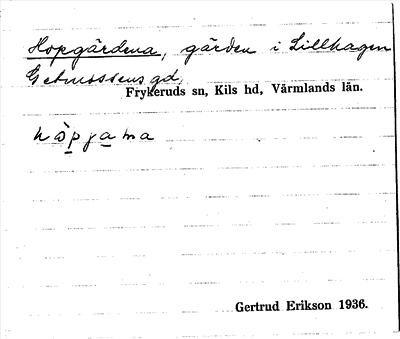 Hopgärdena, gärden i Lillhagen
Getmossens gd,
Frykeruds sn, Kils hd, Värmlands län.
Gertrud Erikson 1936.